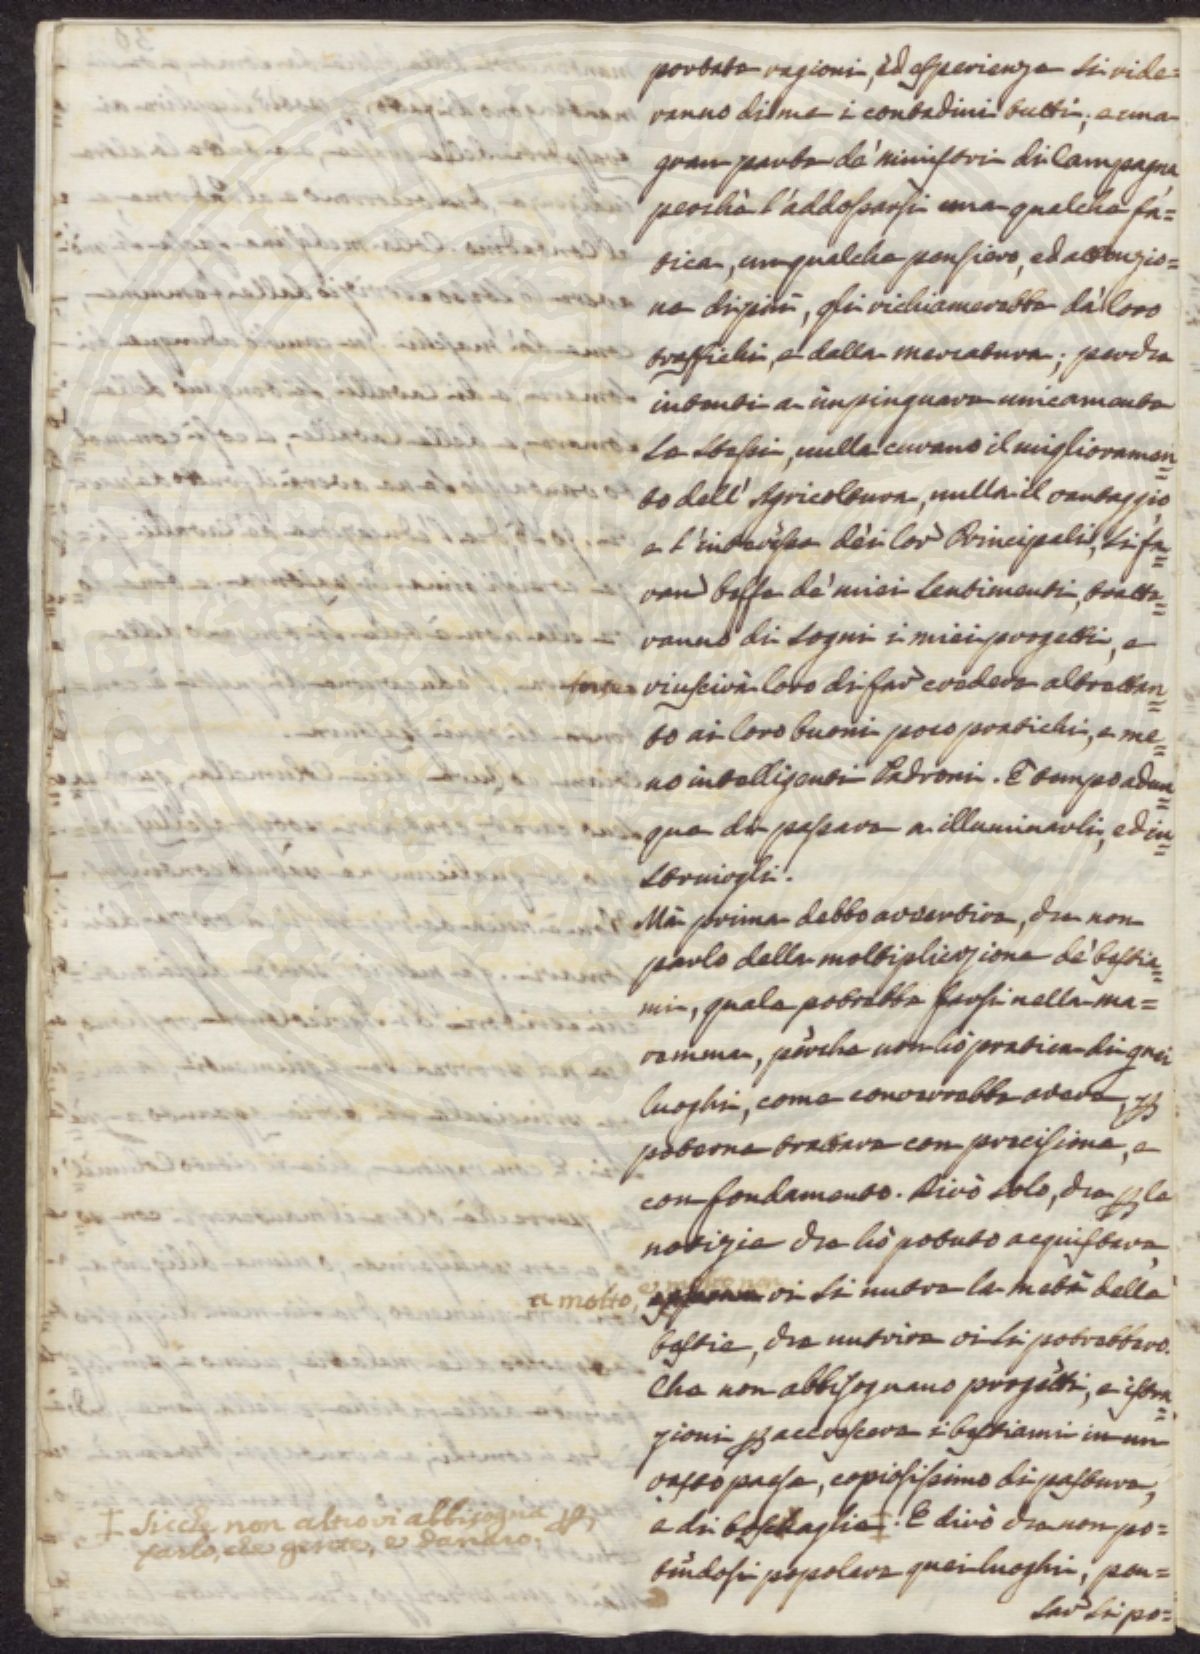 portate ragioni, ed esperienze si ride=
ranno di me i contadini tutti, e una
gran parte de' ministri di Campagna
perchè l'addossarsi una qualche fa=
tica, un qualche pensiero, ed attenzio=
ne di più, gli richiamerebbe da' loro
traffichi, e dalla mercatura; perchè
intenti a impinguare unicamente
se stessi, nulla curano il miglioramen=
to dell'Agricoltura, nulla il vantaggio,
e l'interesse dei lor Principali, si fa=
ran beffe de' miei sentimenti, tratte=
ranno di sogni i miei progetti, e
forse riuscirà loro di far credere altrettan=
to ai loro buoni poco pratichi, e me=
no intelligenti Padroni. È tempo adun=
que di passare a illuminarli, ed in=
struirgli.
Mà prima debbo avvertire, che non
parlo della moltiplicazione de' bestia=
mi, quale potrebbe farsi nella ma=
remma, perche non hò pratica di quei
luoghi, come converrebbe avere, p
poterne trattare con precisione, e
con fondamento. Dirò solo, che p le
notizie che hò potuto acquistare,
e molto non
a molto, appena vi si nutre la metà delle
bestie, che nutrire vi si potrebbero.
Che non abbisognano progetti, e istru=
zioni p accrescere i bestiami in un
vasto paese, copiosissimo di pasture,
e di boscaglie ‡. E dirò che non po=
tendosi popolare quei luoghi, pen=
sar si po=
‡ Sicche non altro vi abbisogna p
farlo, che gente, e danaro,